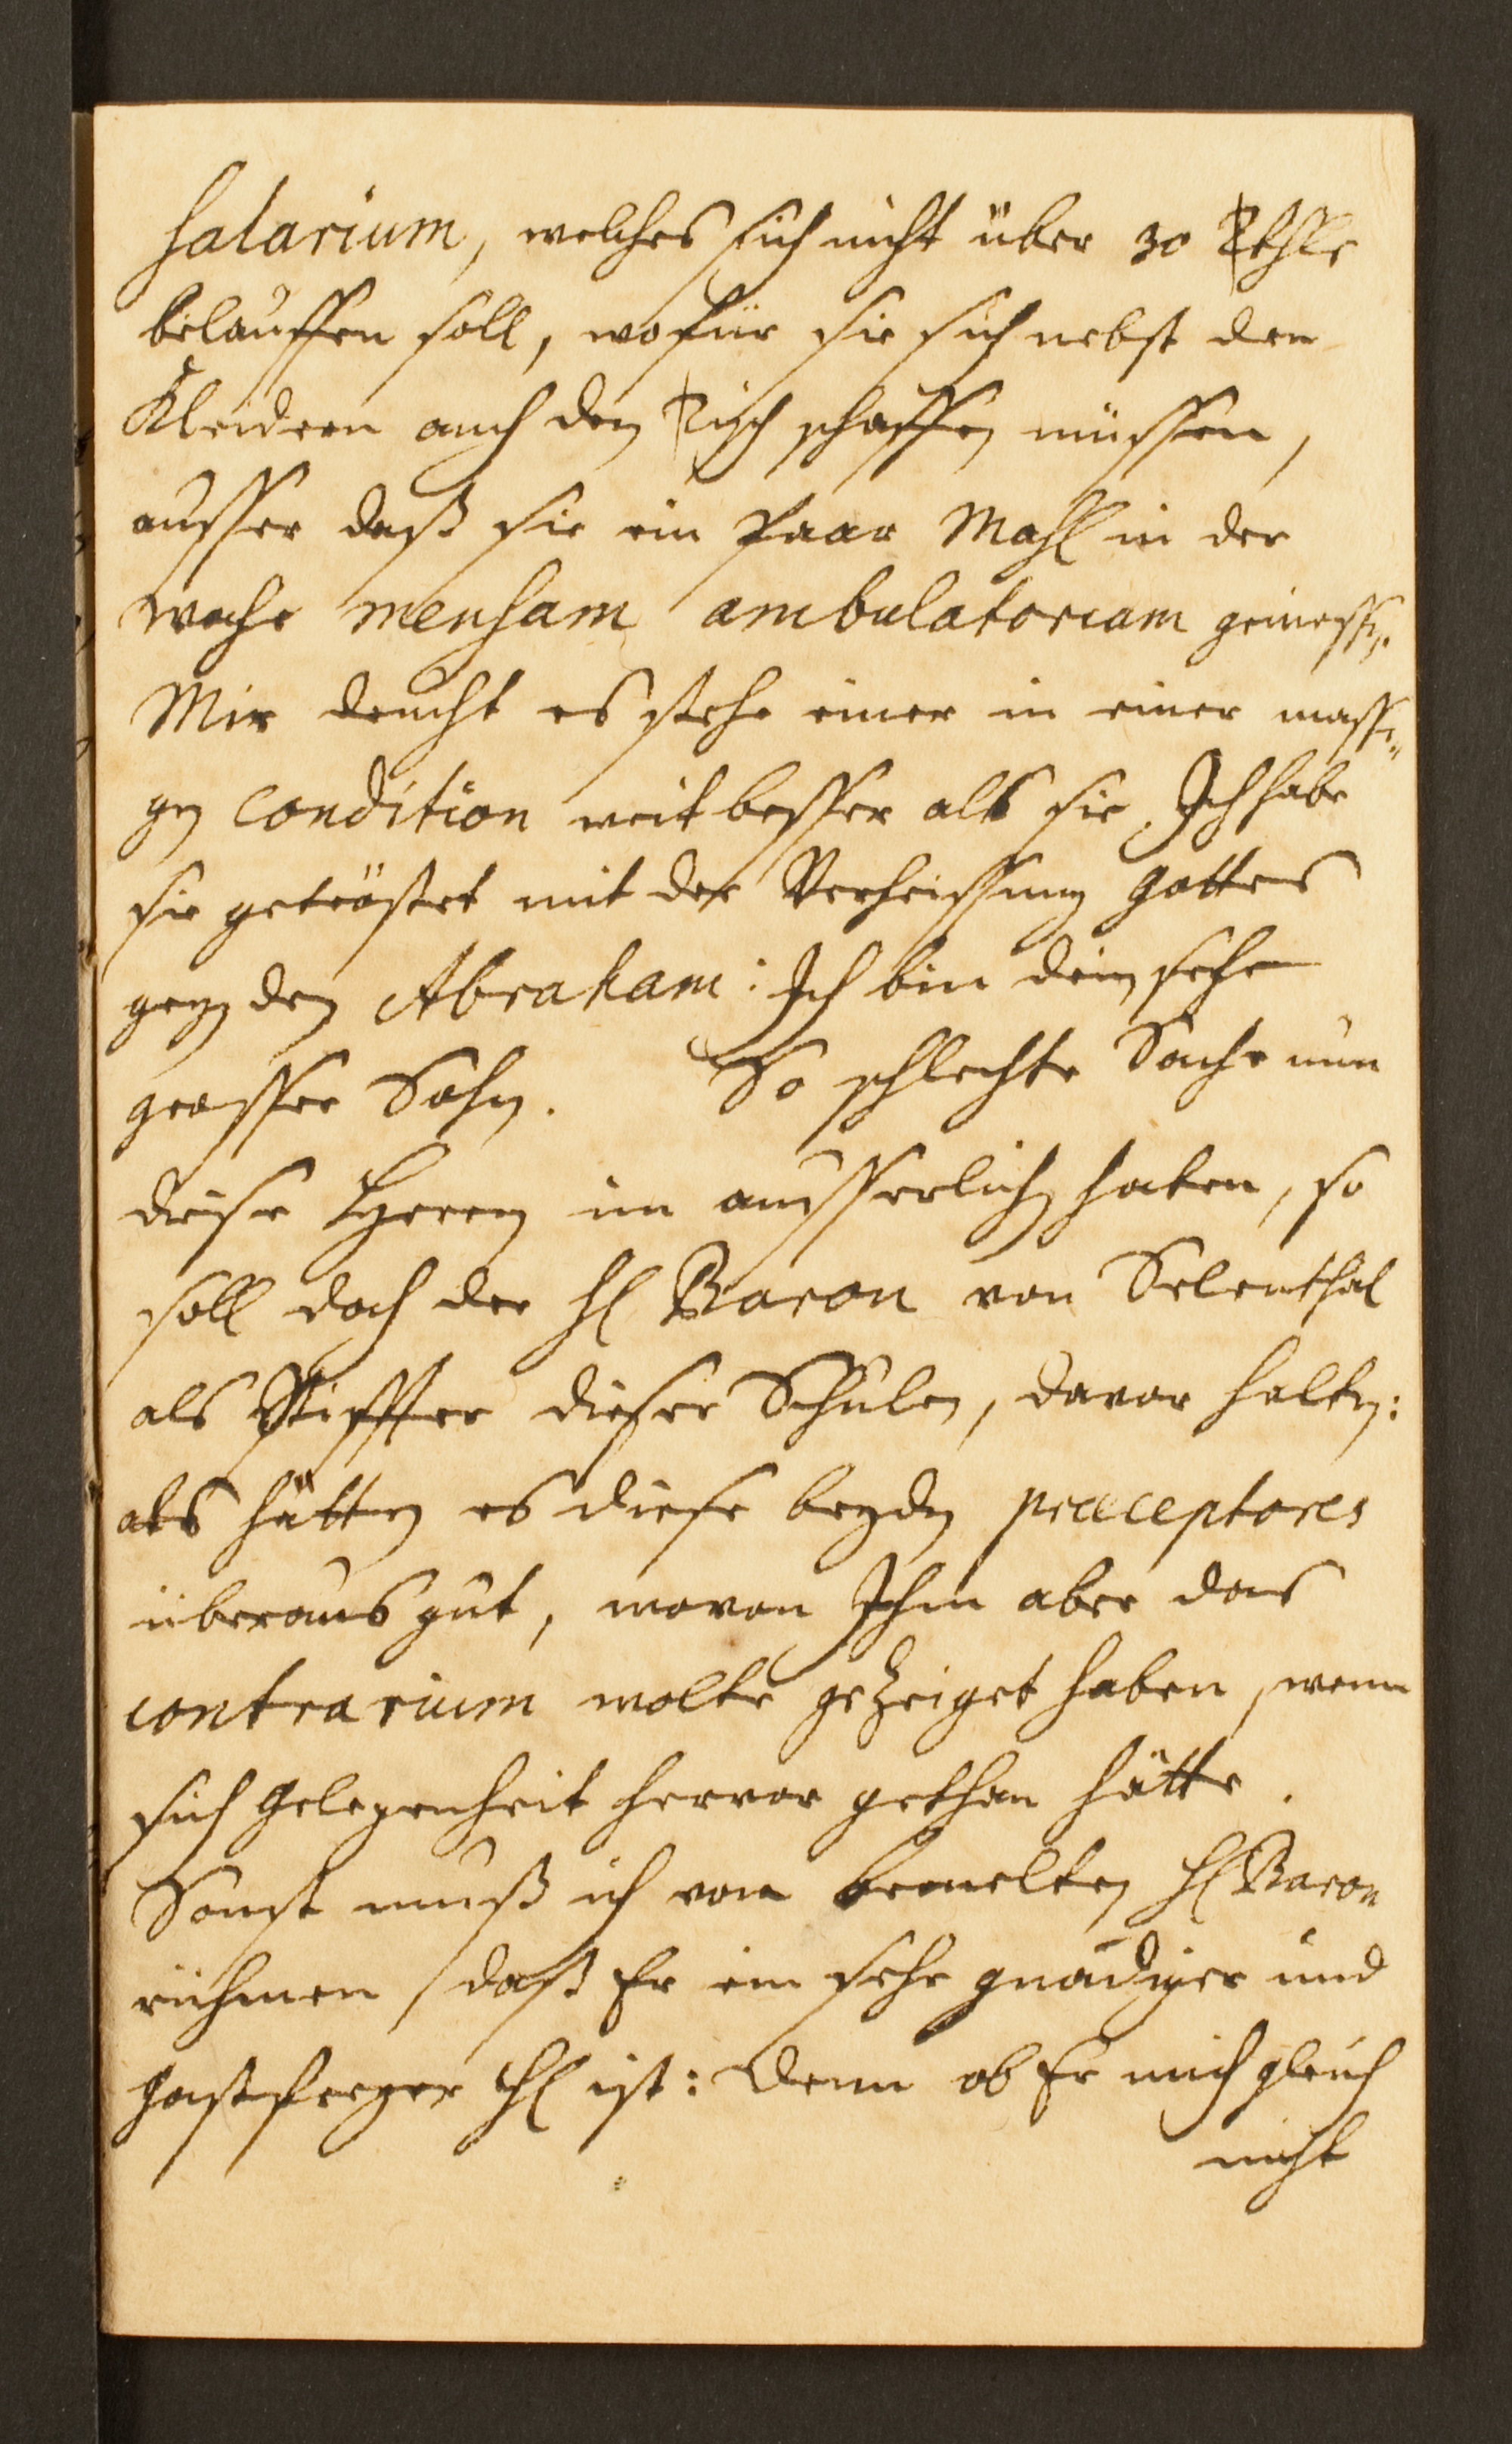 salarium, welches sich nicht über 30 Rthlr
belauffen soll, wofür sie sich nebst den
Kleidern auch den Tisch schaffen müssen,
ausser daß sie ein Paar Mahl in der
Woche mensam ambulatoriam geniessen.
Mir deucht es stehe einer in einer mässi„
gen Condition weit besser als sie. Ich habe
sie getröstet mit der Verheissung Gottes
gegen den Abraham: Ich bin dein sehr
grosser Lohn. So schlechte Sache nun
diese Herren im äusserlichen haben, so
soll doch der H Baron von Selenthal
als Stiffter dieser Schulen, davor halten:
als hätten es diese beyden praeceptores
überaus gut, wovon Ihm aber das
contrarium wolte gezeiget haben, wenn
sich Gelegenheit hervor gethan hätte.
Sonst muß ich von bemelten H Baron
rühmen, daß Er ein sehr gnädiger und
Gastfreyer H ist: Denn ob Er mich gleich
nicht